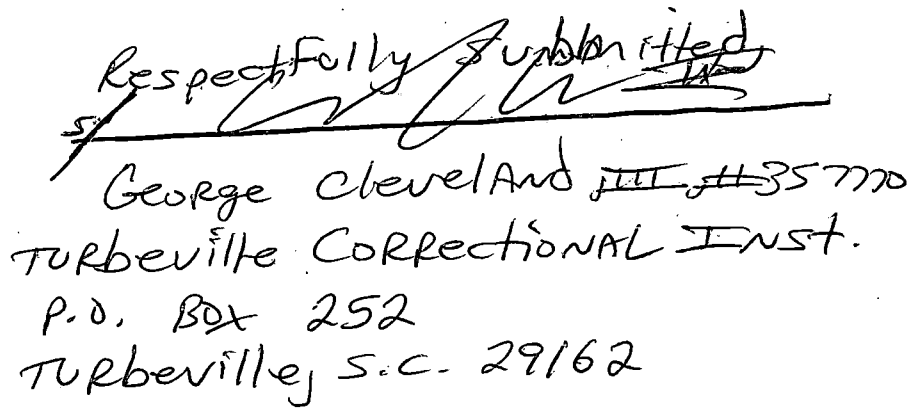 Respectfully Submitted
s/
George Cleveland III #357770
Turbeville Correctional Inst.
P.O. Box 252
Turbeville, S.C. 29162